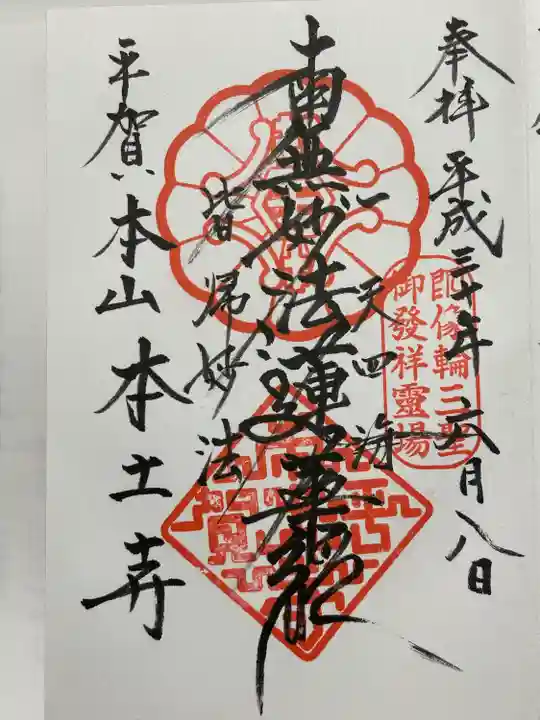 奉拝 平成三十年 六月八日
御發祥靈場
一天四海
南無妙法蓮華経
皆帰妙法
平賀 本山 本土寺